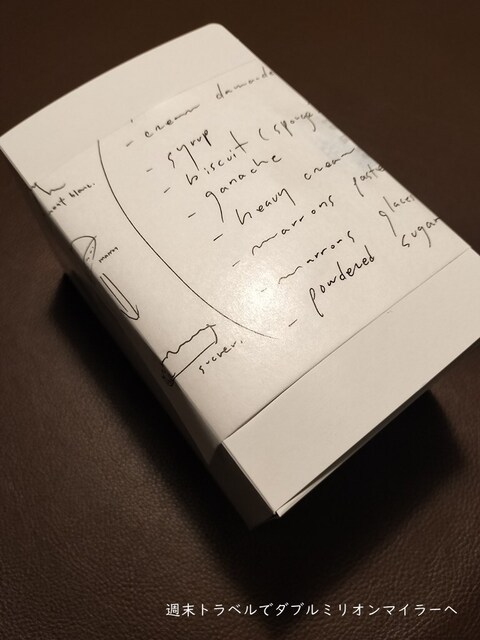 - cream
- syrup
- biscuit (sponge
- ganache
- heavy cream
- marrons paste
- marrons glaces
- powdered sugar
ont blanc.
週末トラベルでダブルミリオンマイラーへ